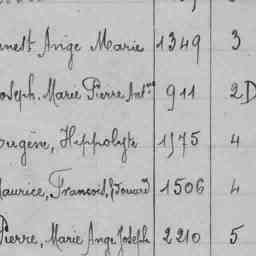 nest Ange Marie 1349 3
oseph. Marie Pierre Ant.ne 911 2D
Eugène, Hippolyte 1575 4
Maurice, François, Edouard 1506 4
Pierre, Marie Ange Joseph 2210 5